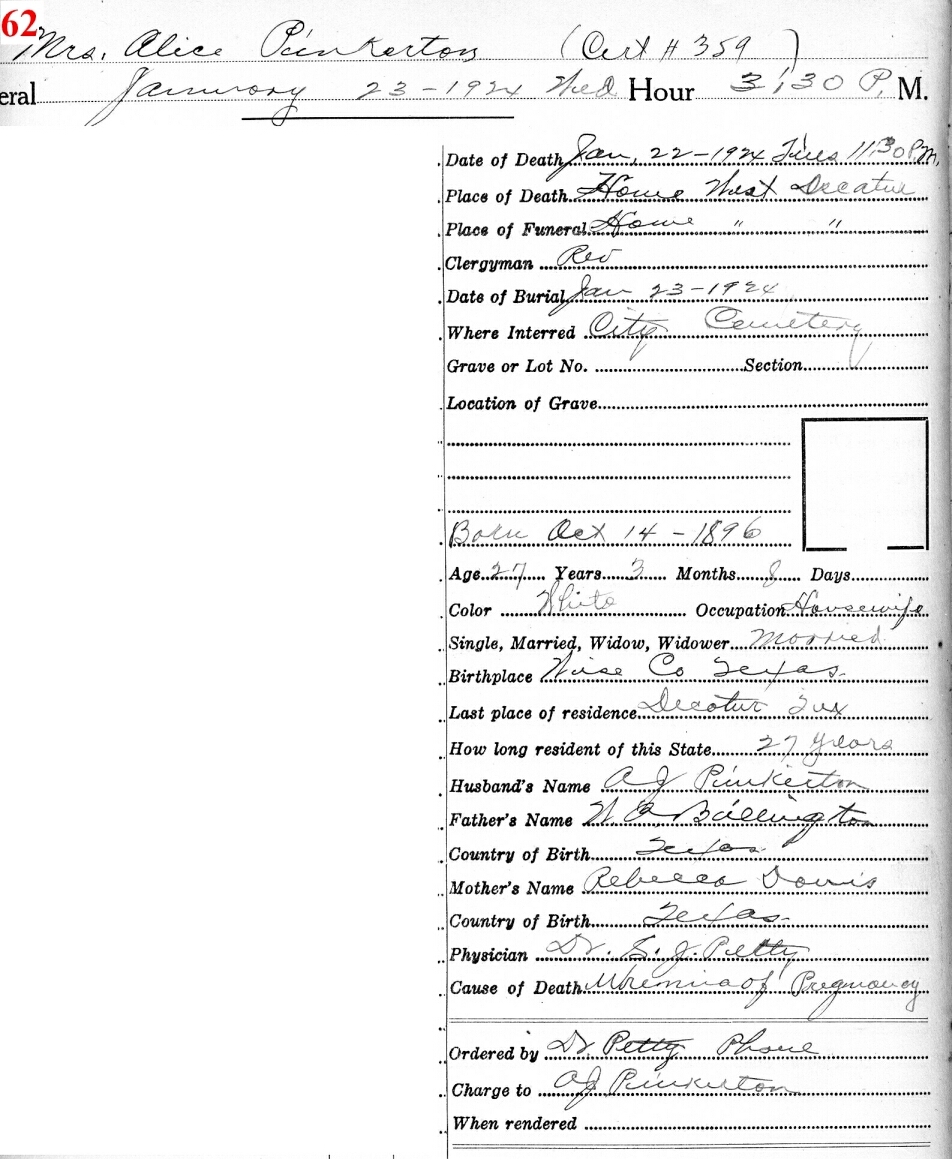 62
Mrs. Alice Pinkerton (Cert # 359)
eral January 23-1924 Wed Hour 3:30 P. M.
Date of Death Jan. 22-1924 Tues 11:30 P.M.
Place of Death Home West Decatur
Place of Funeral Home " "
Clergyman Rev
Date of Burial Jan 23-1924
Where Interred City Cemetery
Grave or Lot No. Section
Location of Grave
Born Oct 14-1896
Age 27 Years 3 Months 8 Days
Color White Occupation Housewife
Single, Married, Widow, Widower Married
Birthplace Wise Co Texas.
Last place of residence Decatur Tex
How long resident of this State 27 years
Husband's Name A J Pinkerton
Father's Name W A Billington
Country of Birth Texas.
Mother's Name Rebecca Davis
Country of Birth Texas.
Physician Dr. S. J. Petty
Cause of Death Uremia of Pregnancy
Ordered by Dr. Petty Phone
Charge to AJ Pinkerton
When rendered